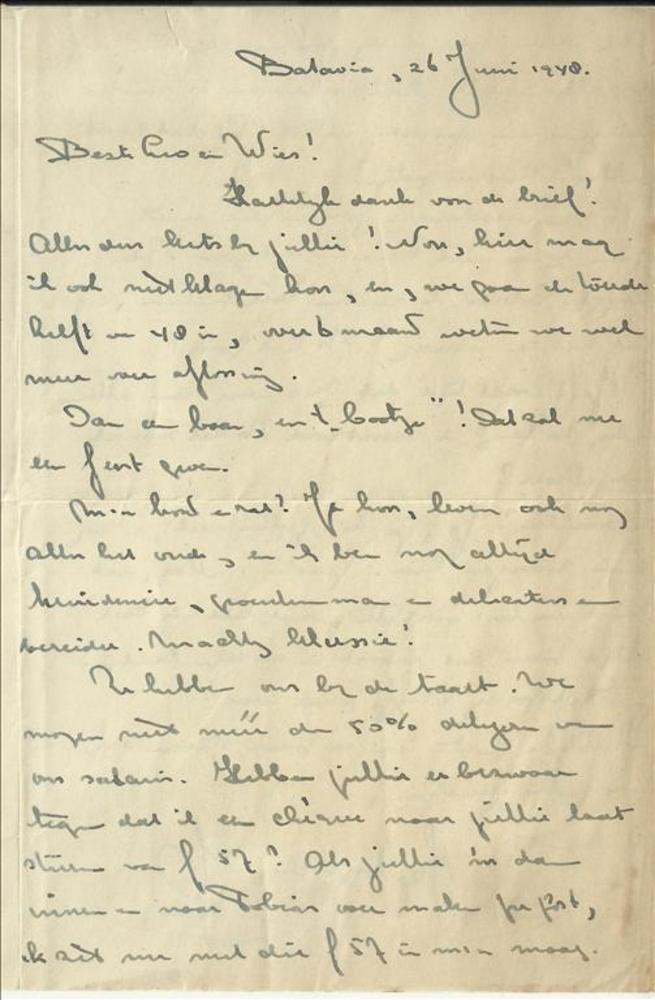 Batavia, 26 Juni 1948.
Beste en Wies!
Hartelijk dank voor de brief!
Alles dus bij jullie! Nou, hier mag
ik ook niet klagen hoor, en, we gaan de tweede
helft van 48 in, over 6 maand weten we wel
meer over aflossing.
Dan een baan, en 't "bootje"! Dat zal me
een feest geven.
M'n hond en rat? Ja hoor, leven ook nog
alles het oude, en ik ben nog altijd
groentenman en
bereider. Machtig klussie!
Ze hebben ons bij de taart. We
mogen niet méér dan 50% van
ons salaris. Hebben jullie er bezwaar
tegen dat ik een chèque naar jullie laat
sturen van f 57? Als jullie 'm dan
innen en naar Tobias over maken per post,
ik zit nu met die f 57 in m'n maag.